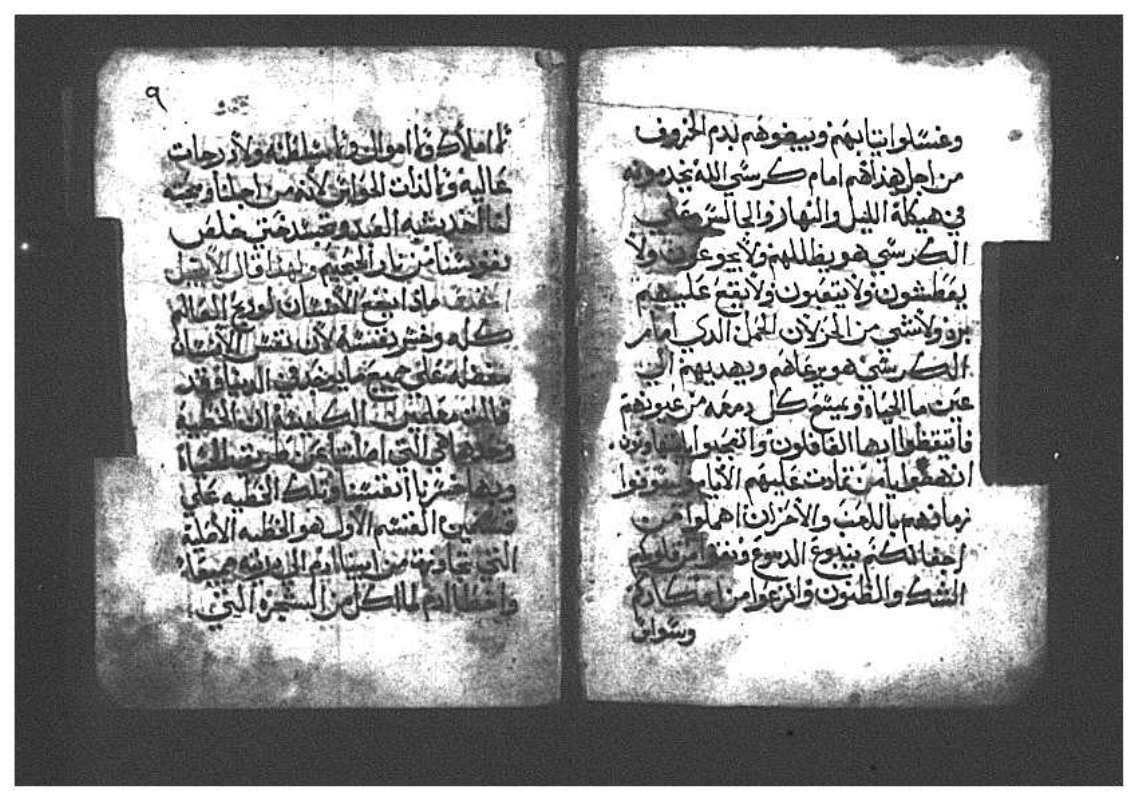 وغسلوا اتيابهم وبيضوهم بدم الخروف
من اجل هذا هم امام كرسي الله يخدمونه
في هيكله الليل والنهار والجالس علي
الكرسي هو يظللهم ولا يجوعون ولا
يعطشون ولا يتعبون ولا يقع عليهم
برد ولا شي من الحر لان الحمل الدي امام
الكرسي هو يرعاهم ويهديهم الي
عين ما الحياه ويمسح كل دمعه من عيونهم
فاتيقظوا ايها الغافلون وانتصبوا
يامن تمادت عليهم الايام
زمانهم باللعب والاحزان اهملوا من
احفانكم ينبوع الدموع من قلوبكم
الشك والظنون وانزعوا من افكاركم
وسواس
٩
املاك ولا اموال ولا سلطنه ولا درجات
عاليه ولا لذات الحواس لانه من اجلنا ومحبته
لنا اخد شبه العبد وتجسد حتي خلص
نفوسنا من نار الجحيم ولهذا قال الانجيل
مادا ينفع الانسان لو ربح العالم
كله وخسر نفسه لان نفس الانسان
علي جميع ما يوجد في الدنيا وقد
قالت معلمين الكنيسه ان الخطيه
وحدها هي التي اضلتنا عن طريق الحياه
وبها خسرنا انفسنا وتلك الخطيه علي
قسمين القسم الاول هو الخطيه الاصلية
التي من ابينا ادم الي دريته جميعا
واخطا ادم لما اكل من الشجره التي